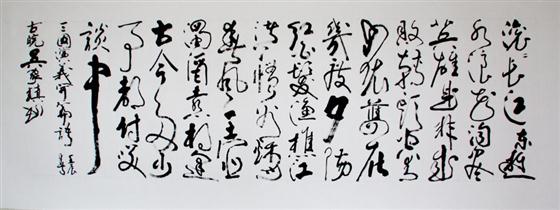 滚滚长江东逝
水浪花淘尽
英雄是非成
败转头空青
山依旧在
几度夕阳
红白发渔樵江
渚上惯看秋月
春风一壶
浊酒喜相逢
古今多少
事都付笑
談中
三国演义开篇诗
古皖吴